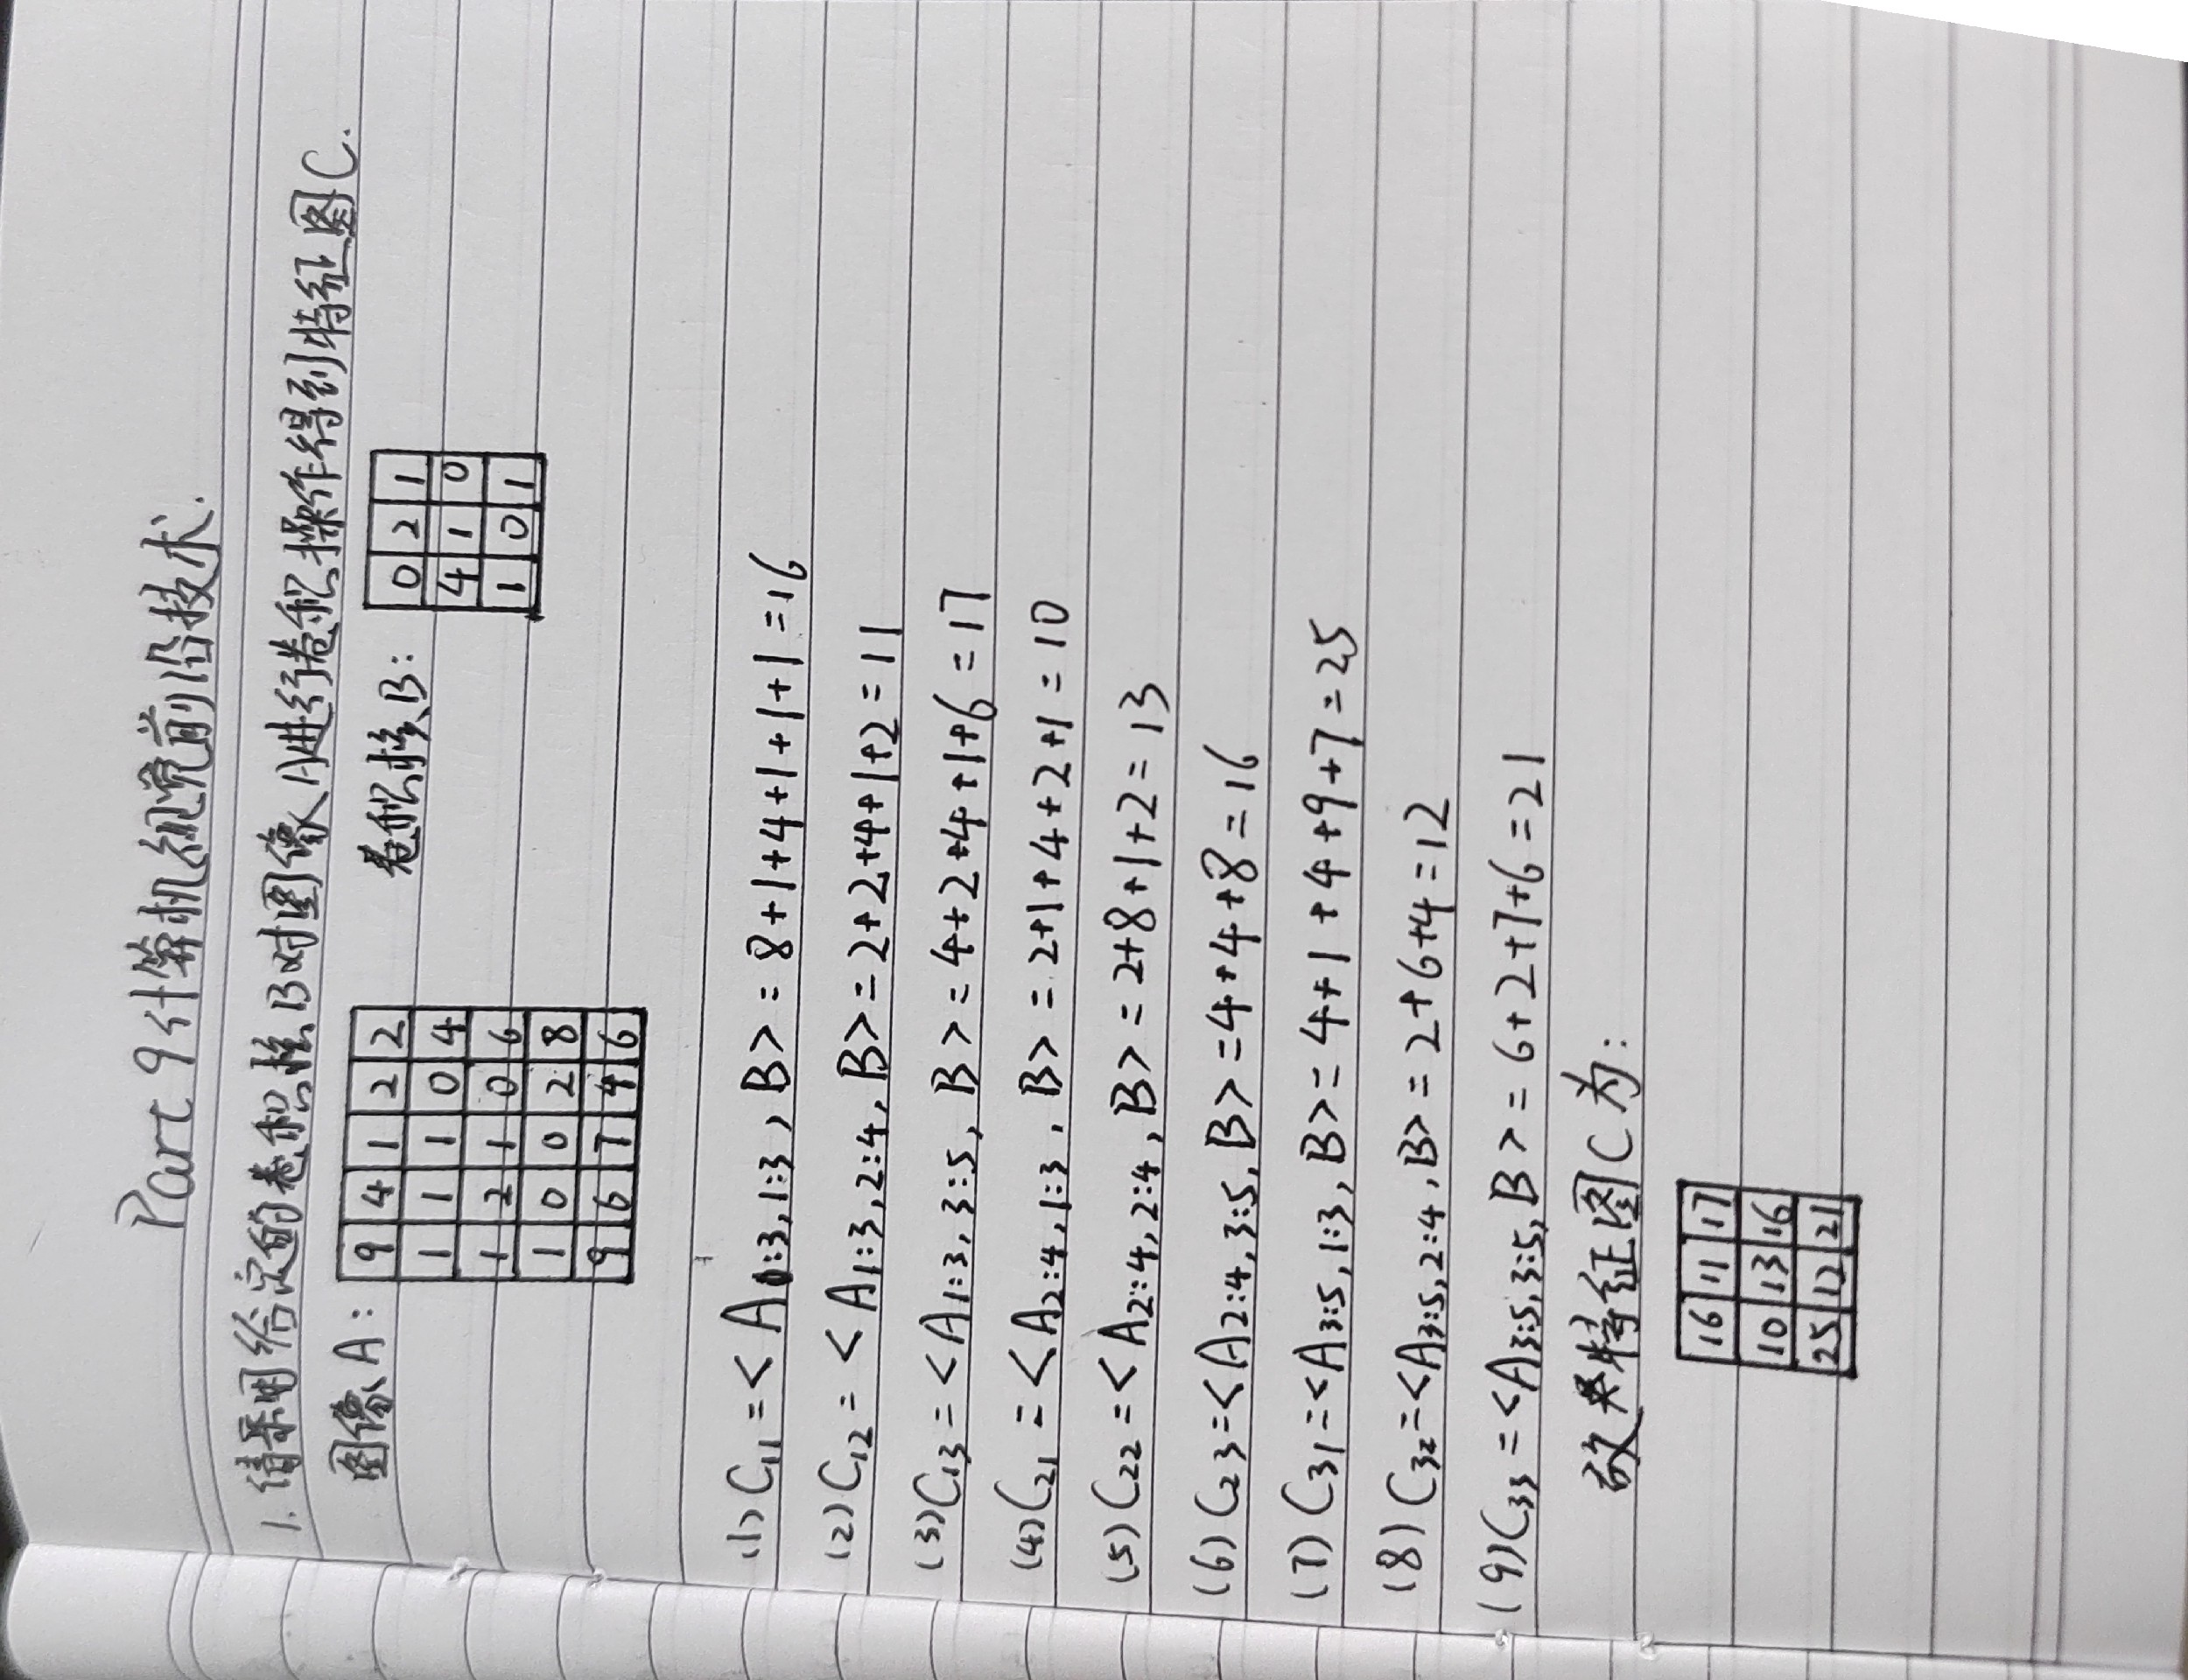 Part 9 计算机视觉前沿技术.
1. 请采用给定的卷积核B对图像A进行卷积操作得到特征图C.
图像A: 卷积核B:
9 4 1 2 2
1 1 1 0 4
1 2 1 0 6
1 0 0 2 8
9 6 7 4 6
0 2 1
4 1 0
1 0 1
(1) C₁₁ = < A₁:₃,₁:₃, B> = 8+1+4+1+1+1 = 16
(2) C₁₂ = < A₁:₃,₂:₄, B> = 2+2+4+1+2 = 11
(3) C₁₃ = <A₁:₃,₃:₅, B> = 4+2+4+1+6 = 17
(4) C₂₁ = <A₂:₄,₁:₃, B> = 2+1+4+2+1 = 10
(5) C₂₂ = <A₂:₄,₂:₄, B> = 2+8+1+2 = 13
(6) C₂₃ = <A₂:₄,₃:₅, B> = 4+4+8 = 16
(7) C₃₁ = <A₃:₅,₁:₃, B> = 4+1+4+9+7 = 25
(8) C₃₂ = <A₃:₅,₂:₄, B> = 2+6+4 = 12
(9) C₃₃ = <A₃:₅,₃:₅, B> = 6+2+7+6 = 21
故特征图C为:
16 11 17
10 13 16
25 12 21